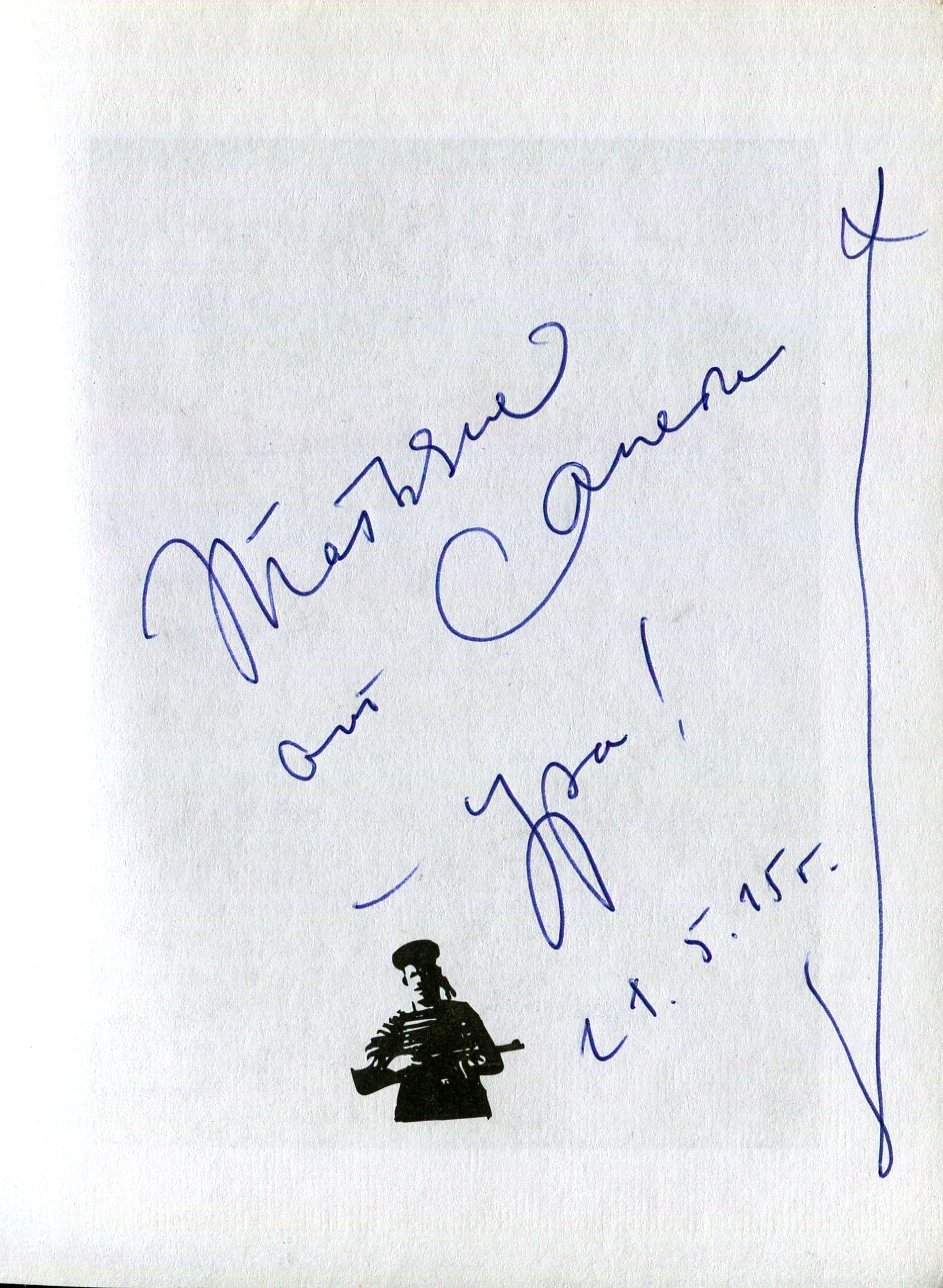 Татьяне
от Санели
Ура!
21.5.15г.